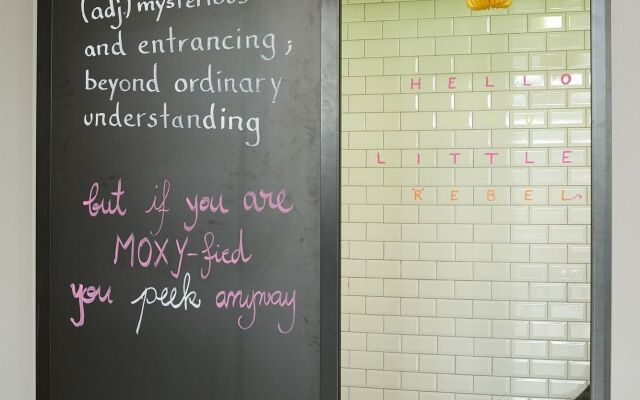 (adj.) mysterious
and entrancing;
beyond ordinary
understanding
but if you are
MOXY-fied
you peek anyway
HELLO
LITTLE
REBEL